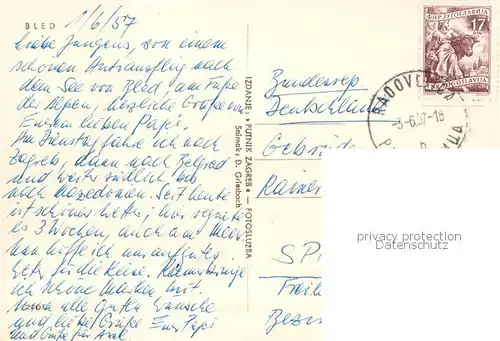 BLED 1/6/57
Liebe Jungens, von einem
schönen Autoausflug nach
dem See von Bled, am Fuße
der Alpen, herzliche Grüße von
Eurem lieben Papi.
Am Dienstag fahre ich nach
Zagreb, dann nach Belgrad
und weiter südlich bis
nach Mazedonien. Seit heute
ist schönes Wetter; hier regnete
es 3 Wochen, auch am Meer.
Nun hoffe ich nur auf gutes
Wetter für die Reise.
ich schöne Marken mit.
alle guten Wünsche
und liebe Grüße Euer Papi
und Grüße für Axel.
IZDANJE: »PUTNIK ZAGREB« — FOTOSLUŽBA
Snimak: D. Griesbach
ФНР ЈУГОСЛАВИЈА
17
JUGOSLAVIJA
RADOVL
-3-6.57-18
Bundesrep
Deutschland
Gebrüde
Rainer
SP
Frei
Bezir
privacy protection
Datenschutz